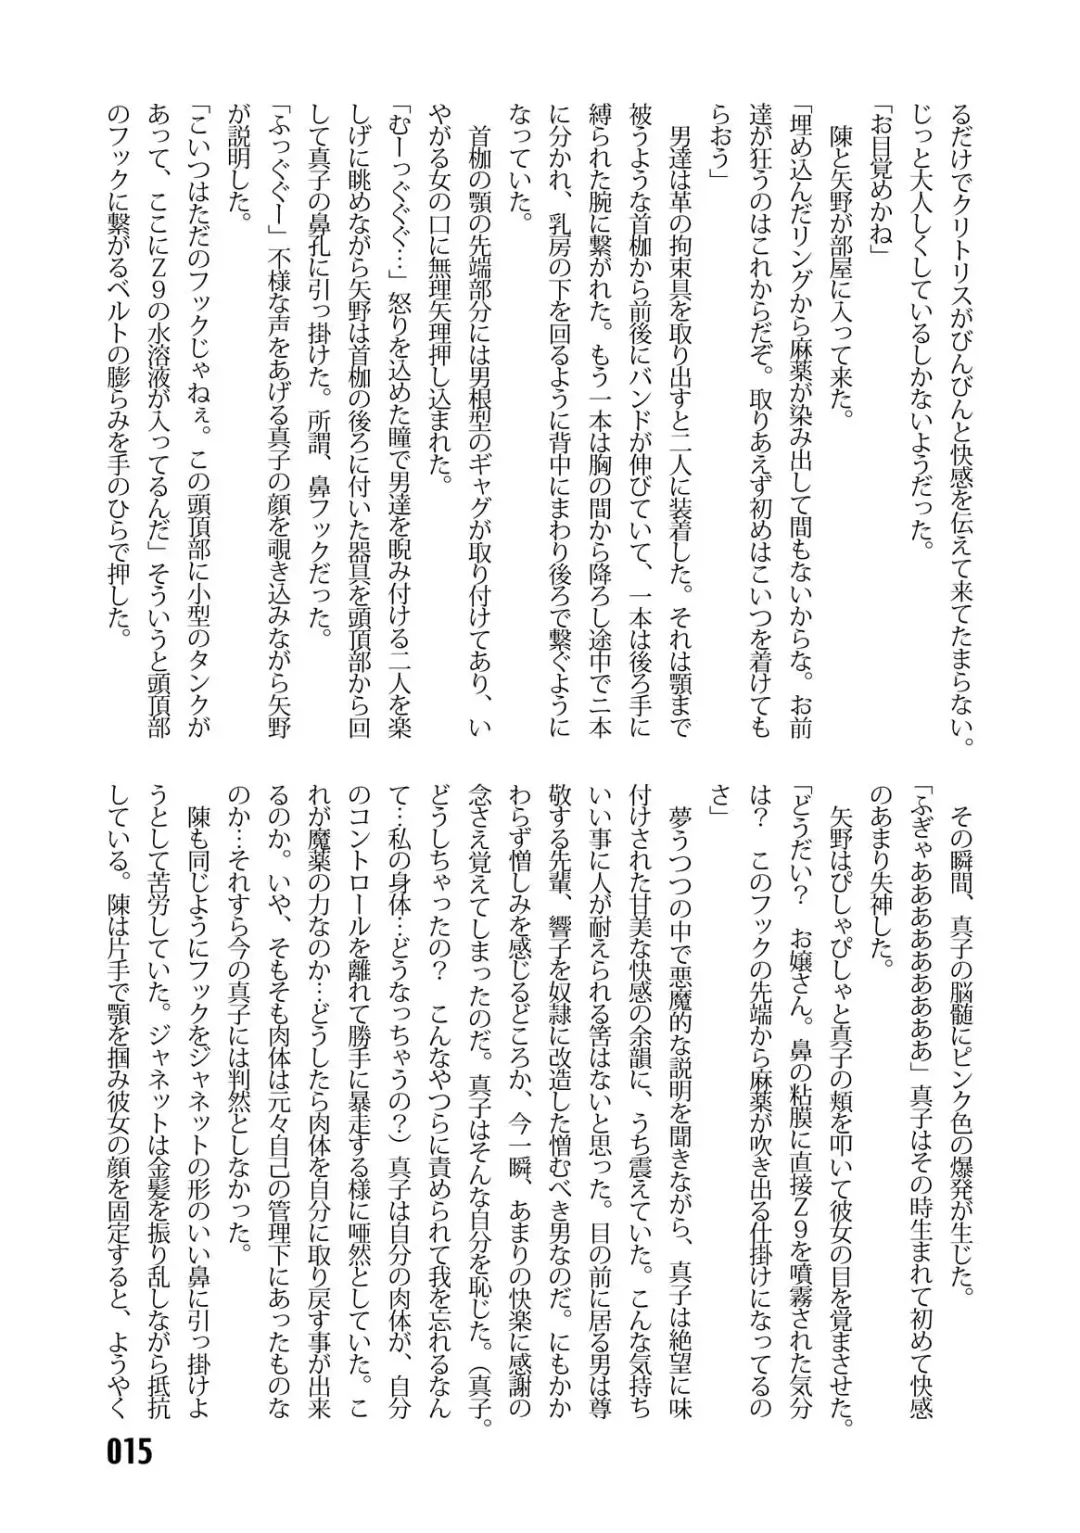 るだけでクリトリスがびんびんと快感を伝えて来てたまらない。
じっと大人しくしているしかないようだった。
「お目覚めかね」
陳と矢野が部屋に入って来た。
「埋め込んだリングから麻薬が染み出して間もないからな。お前
達が狂うのはこれからだぞ。取りあえず初めはこいつを着けても
らおう」
男達は革の拘束具を取り出すと二人に装着した。それは顎まで
被うような首枷から前後にバンドが伸びていて、一本は後ろ手に
縛られた腕に繋がれた。もう一本は胸の間から降ろし途中で二本
に分かれ、乳房の下を回るように背中にまわり後ろで繋ぐように
なっていた。
首枷の顎の先端部分には男根型のギャグが取り付けてあり、い
やがる女の口に無理矢理押し込まれた。
「むーっぐぐぐ…」怒りを込めた瞳で男達を睨み付ける二人を楽
しげに眺めながら矢野は首枷の後ろに付いた器具を頭頂部から回
して真子の鼻孔に引っ掛けた。所謂、鼻フックだった。
「ふっぐぐー」不様な声をあげる真子の顔を覗き込みながら矢野
が説明した。
「こいつはただのフックじゃねぇ。この頭頂部に小型のタンクが
あって、ここにＺ９の水溶液が入ってるんだ」そういうと頭頂部
のフックに繋がるベルトの膨らみを手のひらで押した。
その瞬間、真子の脳髄にピンク色の爆発が生じた。
「ふぎゃあああああああああ」真子はその時生まれて初めて快感
のあまり失神した。
矢野はぴしゃぴしゃと真子の頬を叩いて彼女の目を覚まさせた。
「どうだい？　お嬢さん。鼻の粘膜に直接Ｚ９を噴霧された気分
は？　このフックの先端から麻薬が吹き出る仕掛けになってるの
さ」
夢うつつの中で悪魔的な説明を聞きながら、真子は絶望に味
付けされた甘美な快感の余韻に、うち震えていた。こんな気持ち
いい事に人が耐えられる筈はないと思った。目の前に居る男は尊
敬する先輩、響子を奴隷に改造した憎むべき男なのだ。にもかか
わらず憎しみを感じるどころか、今一瞬、あまりの快楽に感謝の
念さえ覚えてしまったのだ。真子はそんな自分を恥じた。（真子。
どうしちゃったの？　こんなやつらに責められて我を忘れるなん
て…私の身体…どうなっちゃうの？）真子は自分の肉体が、自分
のコントロールを離れて勝手に暴走する様に唖然としていた。こ
れが魔薬の力なのか…どうしたら肉体を自分に取り戻す事が出来
るのか。いや、そもそも肉体は元々自己の管理下にあったものな
のか…それすら今の真子には判然としなかった。
陳も同じようにフックをジャネットの形のいい鼻に引っ掛けよ
うとして苦労していた。ジャネットは金髪を振り乱しながら抵抗
している。陳は片手で顎を掴み彼女の顔を固定すると、ようやく
015